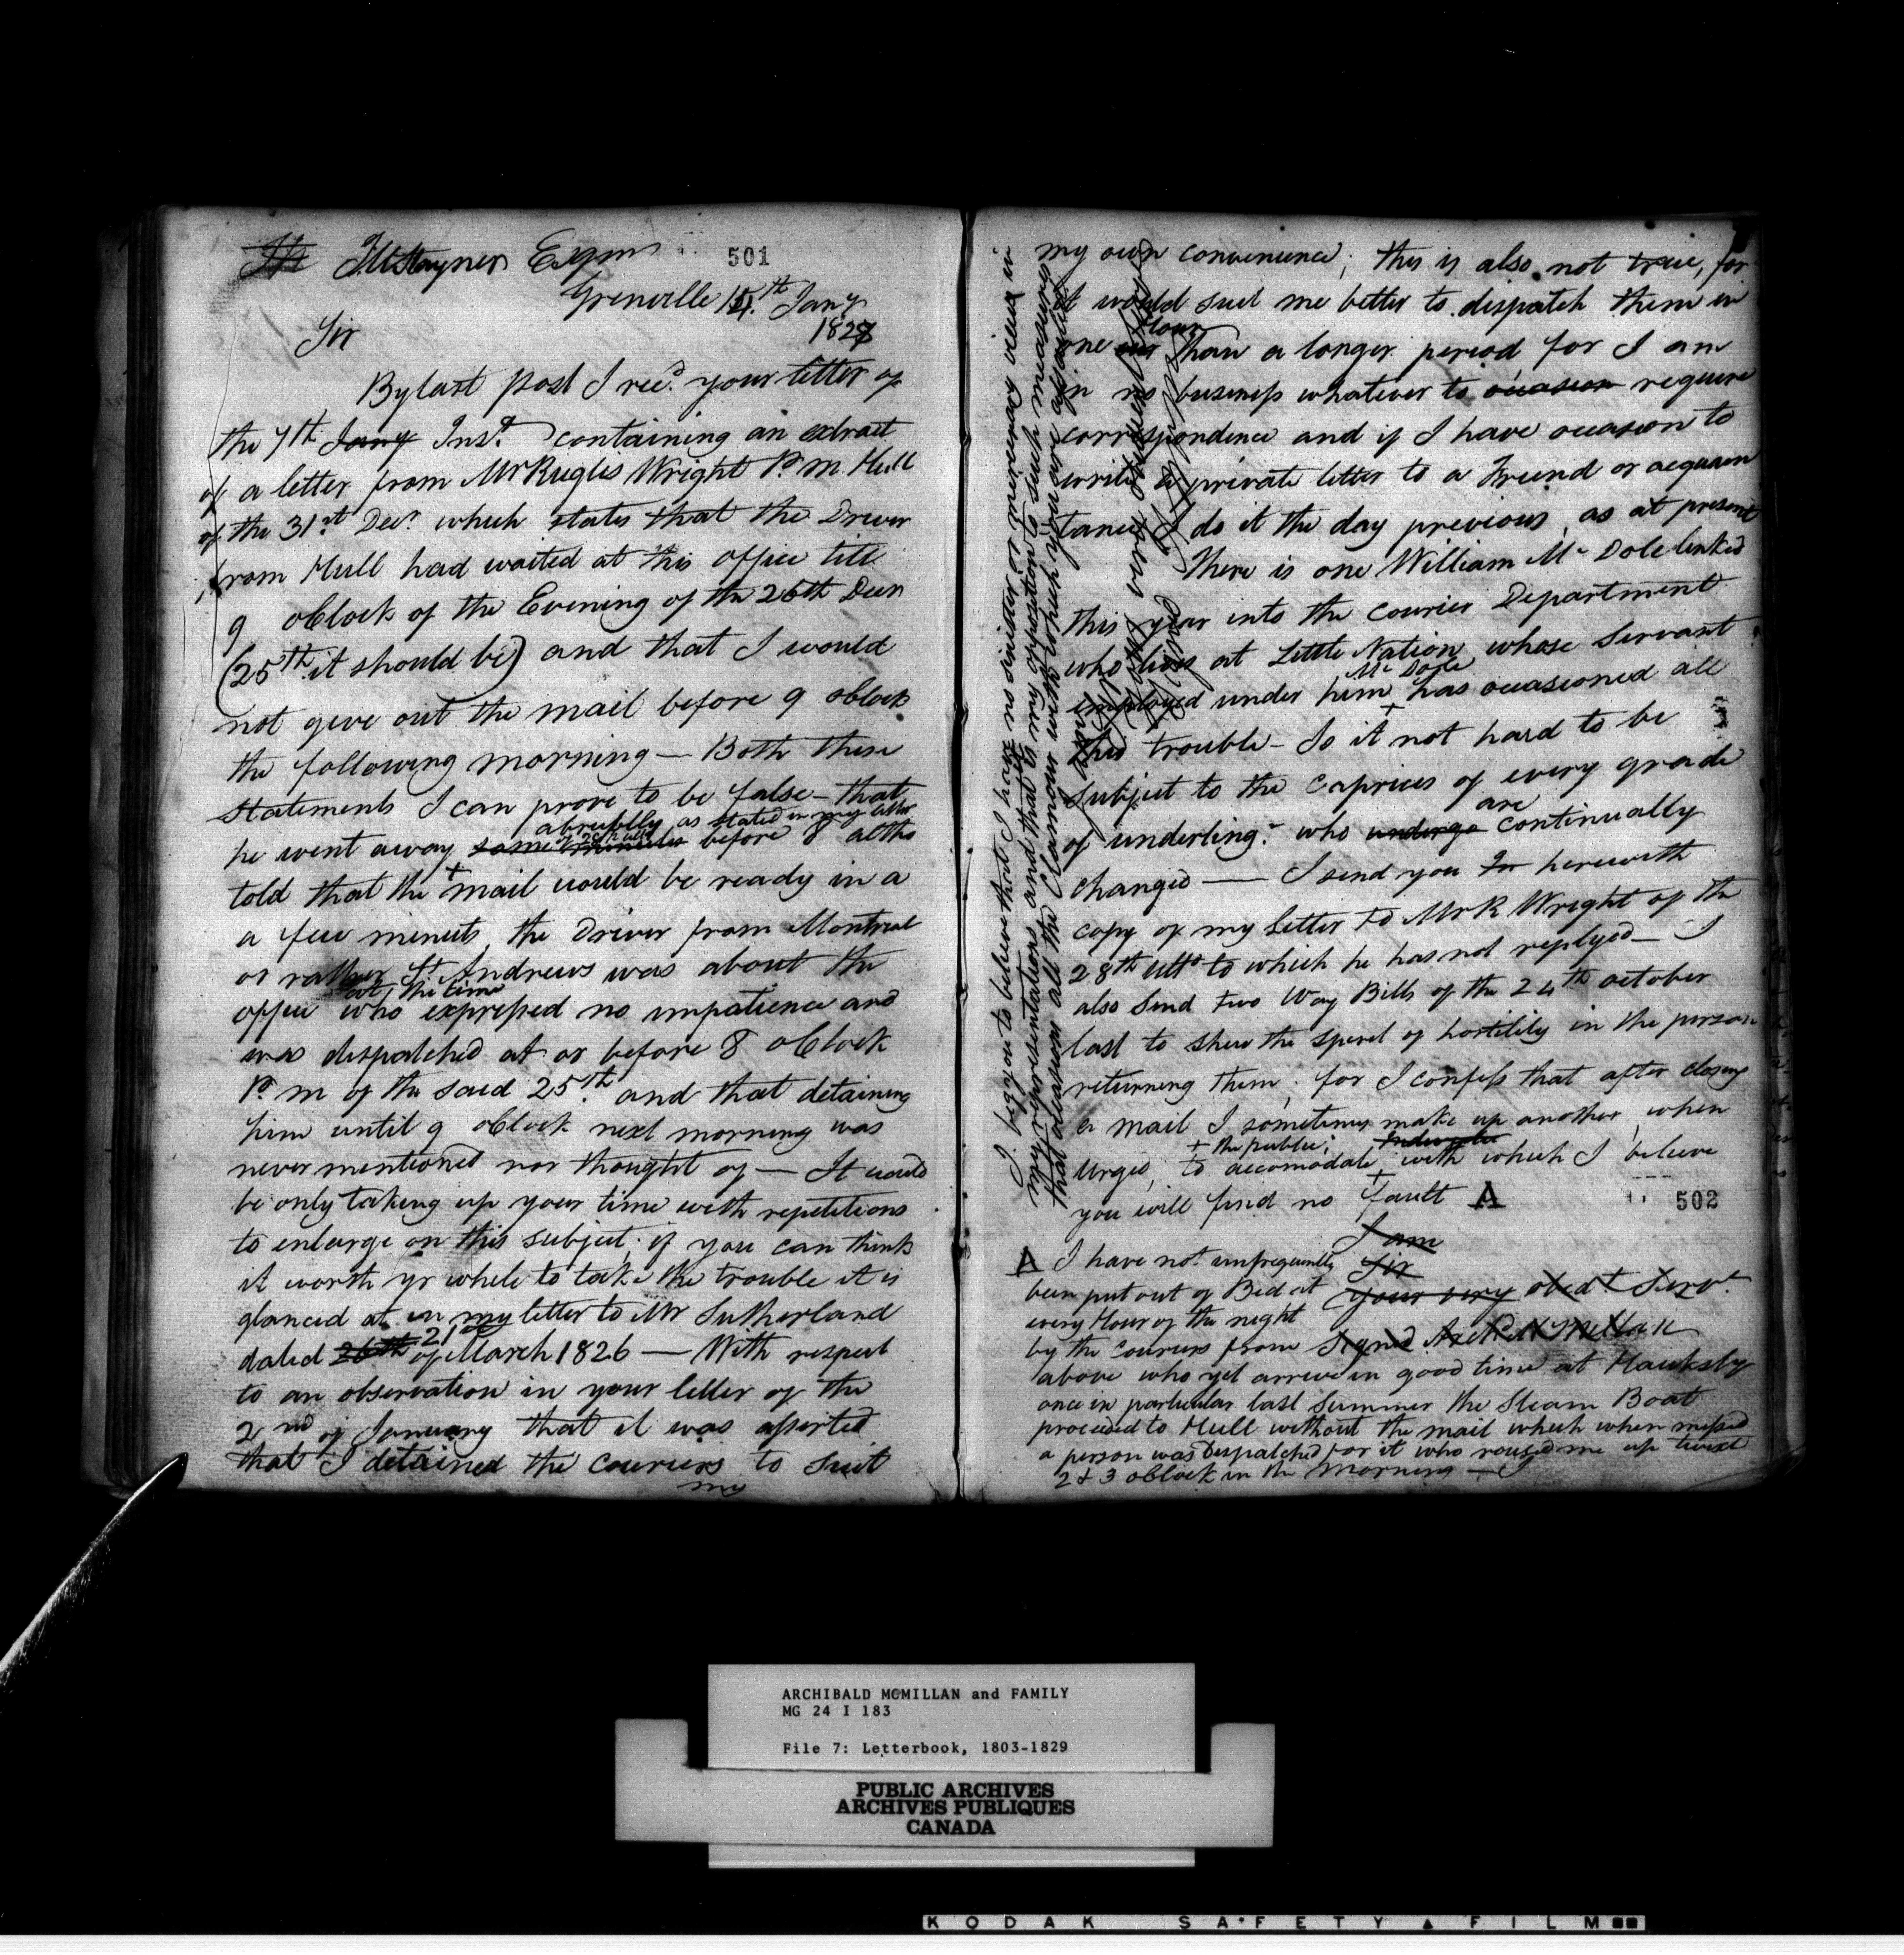 T A Stayner Esqr
501
Grenville 15th Jany
1827
Sir
By last post I recd. your letter of
the 7th Jany Inst. containing an extract
of a letter from Mr Ruglis Wright P. M Hull
of the 31st Decr. which states that the Driver
from Hull had waited at this office till
9 oClock of the Evening of the 26th Decr
(25th it should be) and that I would
not give out the mail before 9 oClock
the following morning — Both these
statements I can prove to be false — that
abruptly as stated in my letter
he went away some minutes before 8 altho
told that the + mail would be ready in a
a few minuts, the Driver from Montreal
or rather St. Andrews was about the
at the time
office who expressed no impatience and
was dispatched at or before 8 oClock
P. m of the said 25th. and that detaining
him until 9 oClock next morning was
never mentioned nor thought of — It would
be only taking up your time with repetitions
to enlarge on this subject; if you can think
it worth yr while to take the trouble it is
glanced at in my letter to Mr Sutherland
dated 26th 21st of March 1826 — With respect
to an observation in your letter of the
2nd of January that it was asserted
that I detained the couriers to suit
my
my own convenience; this is also not true, for
it would suit me better to dispatch them in
hour
one than a longer period for I am
in no business whatever to occasion require
correspondence and if I have occasion to
write a private letter to a Friend or acquain
tance I do it the day previous, as at present
There is one William Mc Dole linked
this year into the courier Department
who lives at Little Nation whose Servant
Mc Dole
employed under him + has occasioned all
this trouble — Is it not hard to be
subject to the caprices of every grade
are
of underling: who undergo continually
changed — I send you For herewith
copy of my letter to Mr R Wright of the
28th Ulto to which he has not replyed — I
also send two Way Bills of the 24th october
last to shew the spirit of hostility in the person
returning them; for I confess that after closing
a mail I sometimes make up another, when
+ the public;
Urged, to accomodate + with which I believe
you will find no fault A
502
I am
Sir
your very obedt. Servt.
Signed Archd McMillan
A I have not unfrequently
been put out of Bed at
every Hour of the night
by the couriers from
above who yet arrive in good time at Hawksby
once in particular last Summer the Steam Boat
proceeded to Hull without the mail which when missed
a person was Dispatched for it who roused me up twixt
2 & 3 oClock in the morning — I
I beg you to believe that I have no sinister or mircenary views in
my representations and that to my opposition to such measures
that occasion all the Clamour with which you are
I am
ARCHIBALD MCMILLAN and FAMILY
MG 24 I 183
File 7: Letterbook, 1803-1829
PUBLIC ARCHIVES
ARCHIVES PUBLIQUES
CANADA
KODAK SAFETY FILM